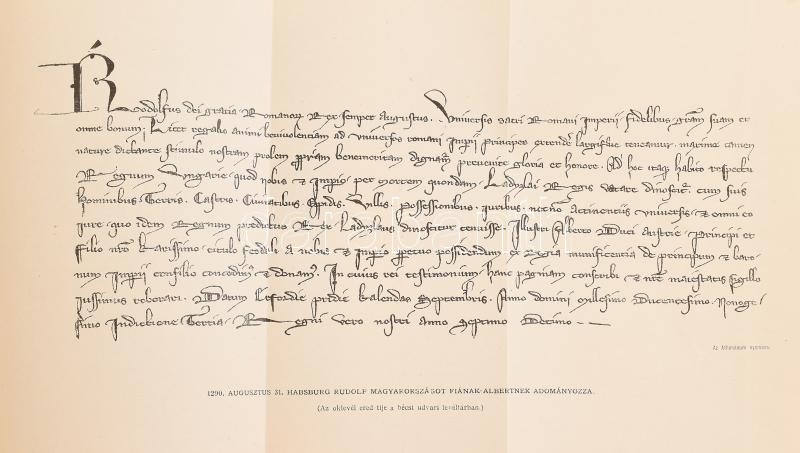 Rodolfus dei gratia Romanor Rex semper augustus. Universis sacri Romani Imperii fidelibus gram suam et
omne bonum. Licet regalis animi benivolenciam ad universos romani Impii principes extendere largiflue teneamur. maxime tamen
nature dictante stimulo nostram prolem ppriam benemeritam dignam prevenire gloria et honore. Ad hoc itaq habito respectu
Regnum Ungarie quod nobis et Impio per mortem quondam Ladizlai Regis vacare dinoscit. cum suis
hominibus. Terris. Castris. Civitatibus. Opidis. Villis. possessionibus. iuribus. attinentiis universis. et omni eo
iure quo idem Regnum predictus Rex Ladizlaus dinoscitur tenuisse. Illustri Alberto Duci Austrie. Principi et
filio nro karissimo. titulo feodali a nobis et Impio ppetuo possidendum ex Regia munificencia de principum et baro-
num Impii consilio concedim et donam. In cuius rei testimonium hanc paginam conscribi et nre maiestatis sigillo
iussimus roborari. Datum Erfordie pridie kalendas Septembris. Anno domini Millesimo Ducentesimo. Nonoge-
simo Indictione Tertia. Regni vero nostri anno Septimo Decimo.
Az Athenaeum nyomása.
1290. AUGUSZTUS 31. HABSBURG RUDOLF MAGYARORSZÁGOT FIÁNAK ALBERTNEK ADOMÁNYOZZA.
(Az oklevél eredetije a bécsi udvari levéltárban.)